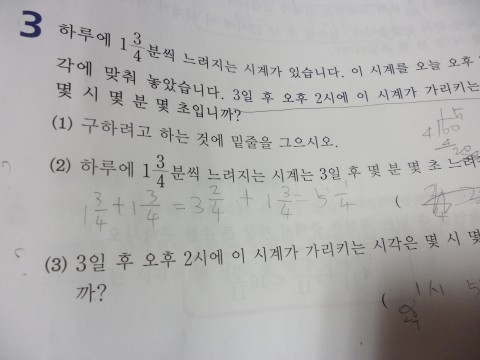 3 하루에 1 3/4 분씩 느려지는 시계가 있습니다. 이 시계를 오늘 오후
각에 맞춰 놓았습니다. 3일 후 오후 2시에 이 시계가 가리키는
몇 시 몇 분 몇 초입니까?
(1) 구하려고 하는 것에 밑줄을 그으시오.
(2) 하루에 1 3/4 분씩 느려지는 시계는 3일 후 몇 분 몇 초 느려
1 3/4 + 1 3/4 = 3 2/4 + 1 3/4 = 5 1/4 (
(3) 3일 후 오후 2시에 이 시계가 가리키는 시각은 몇 시 몇
까?
( 1시 5
오후